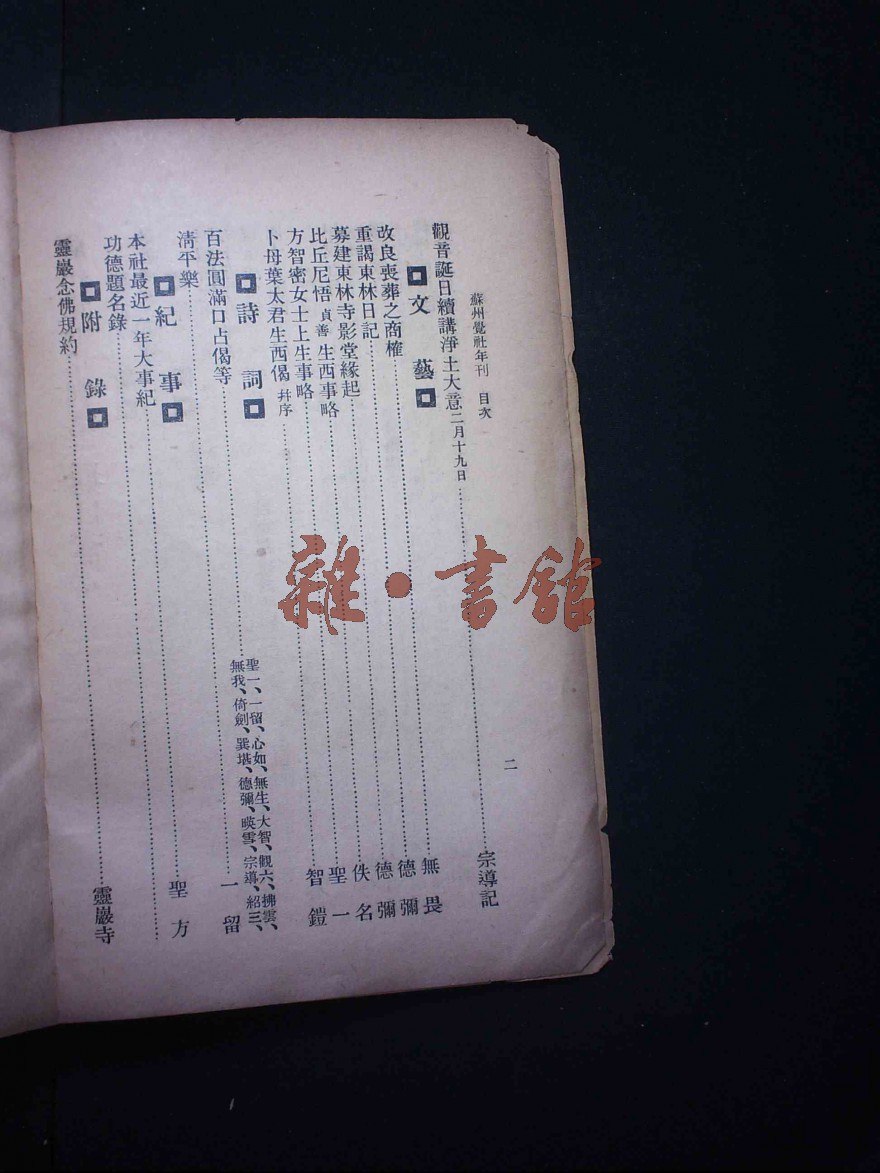 蘇州覺社年刊　目次
二
觀音誕日續講淨土大意二月十九日……宗導記
文藝
改良喪葬之商榷……無畏
重謁東林日記……德彌
募建東林寺影堂緣起……德彌
比丘尼悟貞善生西事略……佚名
方智密女士上生事略……聖一
卜母葉太君生西偈幷序……智鎧
詩詞
百法圓滿口占偈等……聖一、一留、心如、無生、大智、觀六、拂雲、無我、倚劍、巽堪、德彌、暎雪、宗導、紹三、
清平樂……一留
紀事
本社最近一年大事紀……聖方
功德題名錄……
附錄
靈巖念佛規約……靈巖寺
雜·書館